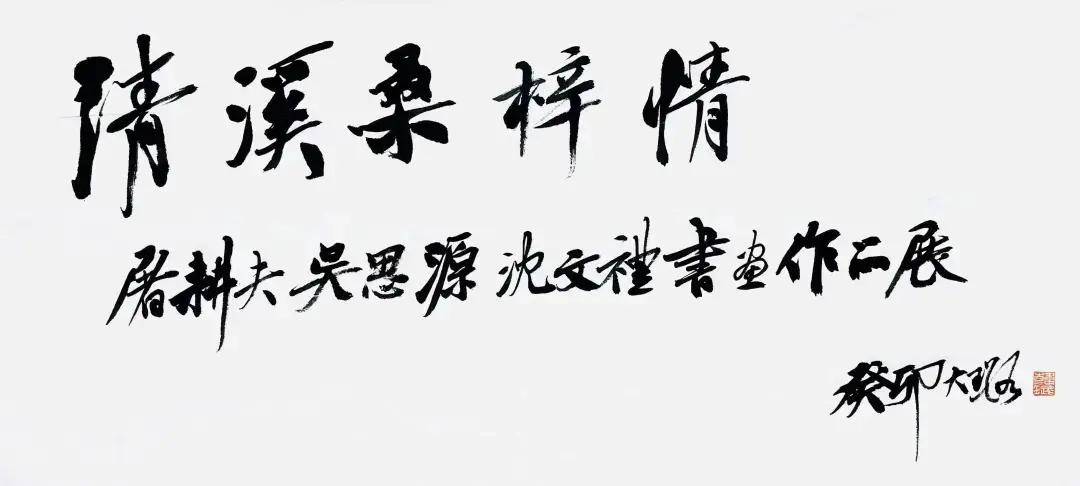 清溪桑梓情
屠耕夫吴思源沈文禮書画作品展
癸卯大璐